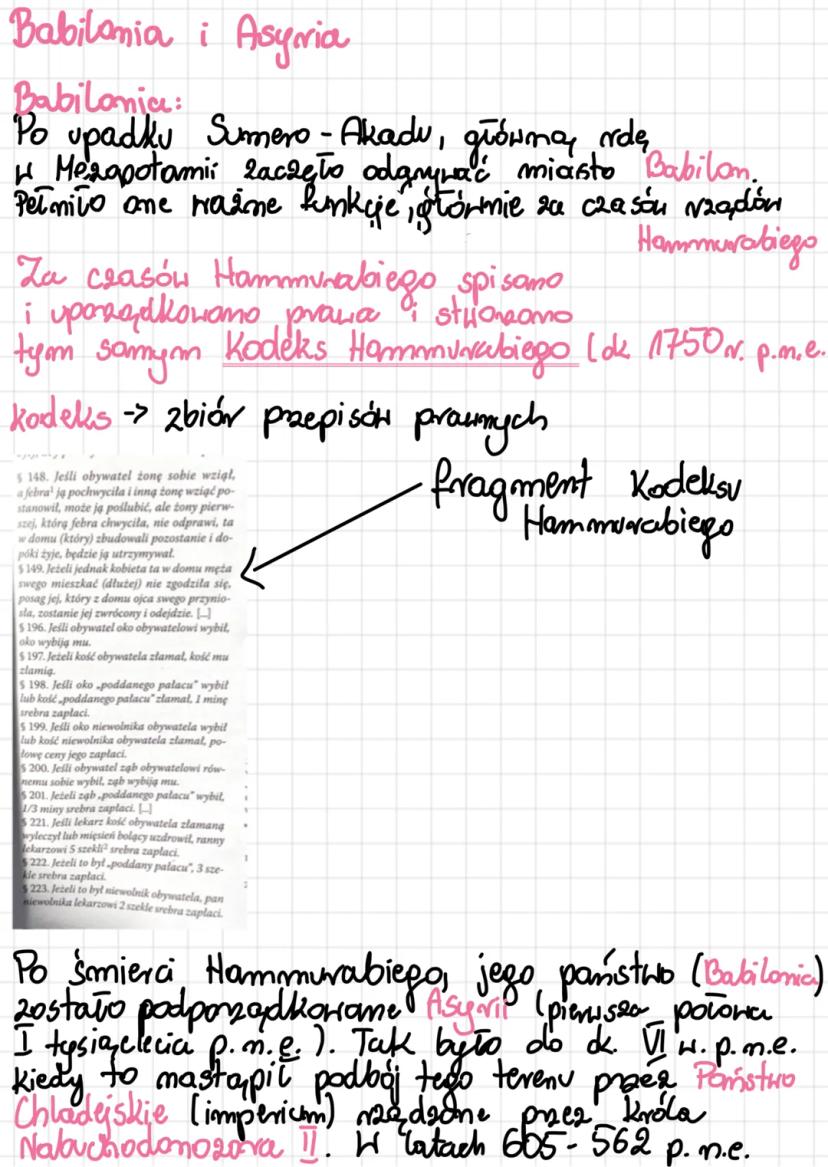 Babilonia i Asyria
Babilonia:
Po upadku Sumero-Akadu, główną rolę
w Mezopotamii zaczęło odgrywać miasto Babilon.
Pełniło one ważne funkcje, głównie za czasów rządów
Hammurabiego
Za czasów Hammurabiego spisano
i uporządkowano prawa i stworzono
tym samym Kodeks Hammurabiego (ok 1750r. p.n.e.
kodeks -> zbiór przepisów prawnych
fragment Kodeksu
Hammurabiego
§ 148. Jeśli obywatel żonę sobie wziął,
a febra¹ ją pochwyciła i inną żonę wziąć po-
stanowił, może ją poślubić, ale żony pierw-
szej, którą febra chwyciła, nie odprawi, ta
w domu (który) zbudowali pozostanie i do-
póki żyje, będzie ją utrzymywał.
§ 149. Jeżeli jednak kobieta ta w domu męża
swego mieszkać (dłużej) nie zgodziła się,
posag jej, który z domu ojca swego przynio-
sła, zostanie jej zwrócony i odejdzie. [...]
§ 196. Jeśli obywatel oko obywatelowi wybił,
oko wybiją mu.
§ 197. Jeżeli kość obywatela złamał, kość mu
złamią.
§ 198. Jeśli oko „poddanego pałacu" wybił
lub kość „poddanego pałacu" złamał, 1 minę
srebra zapłaci.
§ 199. Jeśli oko niewolnika obywatela wybił
lub kość niewolnika obywatela złamał, po-
łowę ceny jego zapłaci.
§ 200. Jeśli obywatel ząb obywatelowi rów-
nemu sobie wybił, ząb wybiją mu.
§ 201. Jeżeli ząb „poddanego pałacu" wybił,
1/3 miny srebra zapłaci. [...]
§ 221. Jeśli lekarz kość obywatela złamaną
wyleczył lub mięsień bolący uzdrowił, ranny
lekarzowi 5 szekli² srebra zapłaci.
§ 222. Jeżeli to był „poddany pałacu", 3 sze-
kle srebra zapłaci.
§ 223. Jeżeli to był niewolnik obywatela, pan
niewolnika lekarzowi 2 szekle srebra zapłaci.
Po śmierci Hammurabiego, jego państwo (Babilonia)
zostało podporządkowane Asyrii (pierwsza połowa
I tysiąclecia p.n.e.). Tak było do ok. VI w. p.n.e.
kiedy to nastąpił podbój tego terenu przez Państwo
Chladejskie (imperium) rządzone przez króla
Nabuchodonozora II. W latach 605-562 p.n.e.